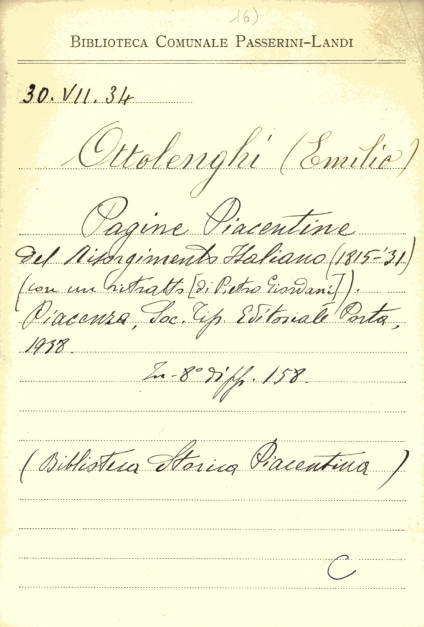 16)
BIBLIOTECA COMUNALE PASSERINI-LANDI
30.VII.34
Ottolenghi (Emilio)
Pagine Piacentine
del Risorgimento Italiano (1815-'31)
(con un ritratto [di Pietro Giordani]).
Piacenza, Soc. Tip. Editoriale Porta,
1938.
In-8° di pp. 158.
(Biblioteca Storica Piacentina)
C